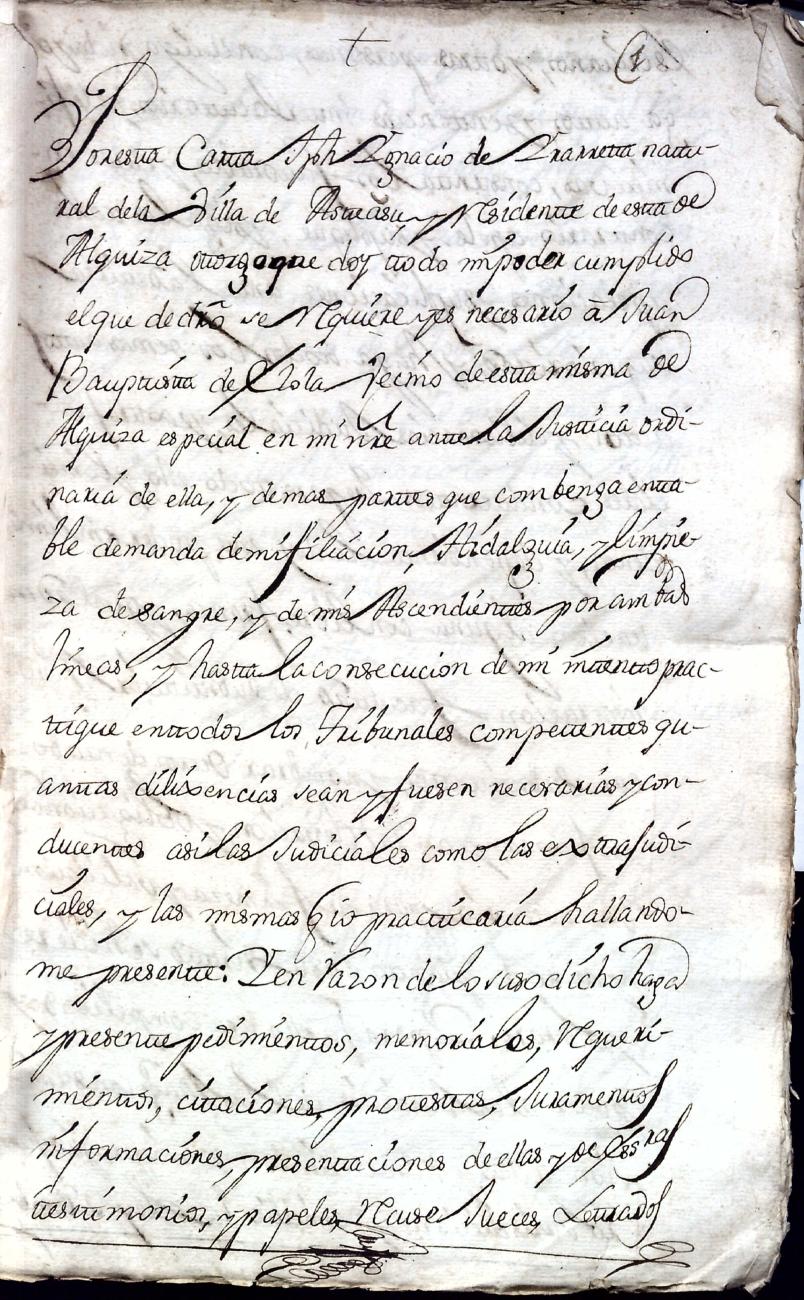 1
Por esta Carta Jph Ygnacio de Yrarreta natu-
ral dela Villa de Asteasu, y Residente de esta de
Alquiza otorgo que doy todo mi poder cumplido
el que de dro se Requiere y es necesario â Juan
Bauptista de Elola Vecino de esta misma de
Alquiza especial en mi nre ante la Justicia ordi-
naria de ella, y demas partes que combenga enta-
ble demanda de mi filiacion Hidalguia, y limpie-
za de sangre, y de mis Ascendientes por ambas
lineas, y hasta la consecucion de mi intento prac-
tique en todos los Tribunales competentes qu-
antas dilixencias sean y fuesen necesarias y con-
ducentes asi las Judiciales como las extrajudi-
ciales, y las mismas q io practicaria hallando-
me presente: Y en Razon de lo suso dicho haga
y presente pedimientos, memoriales, Requeri-
mientos, citaciones, protestas, Juramentos
informaciones, presentaciones de ellas y de Essras
testimonios, y papeles, Recuse Jueces, Letrados